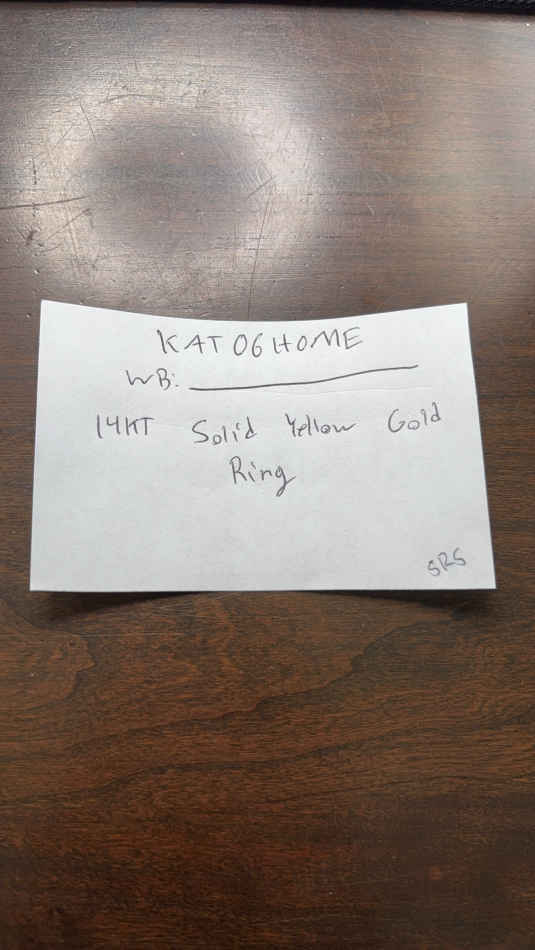 KAT06HOME
WB: ________________
14KT Solid Yellow Gold
Ring
SRS